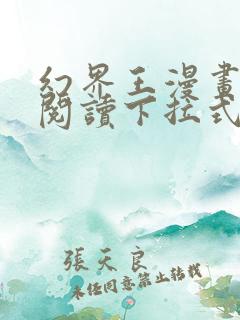 幻界王漫畫
閱讀下拉式
張天良
未經同意禁止轉載